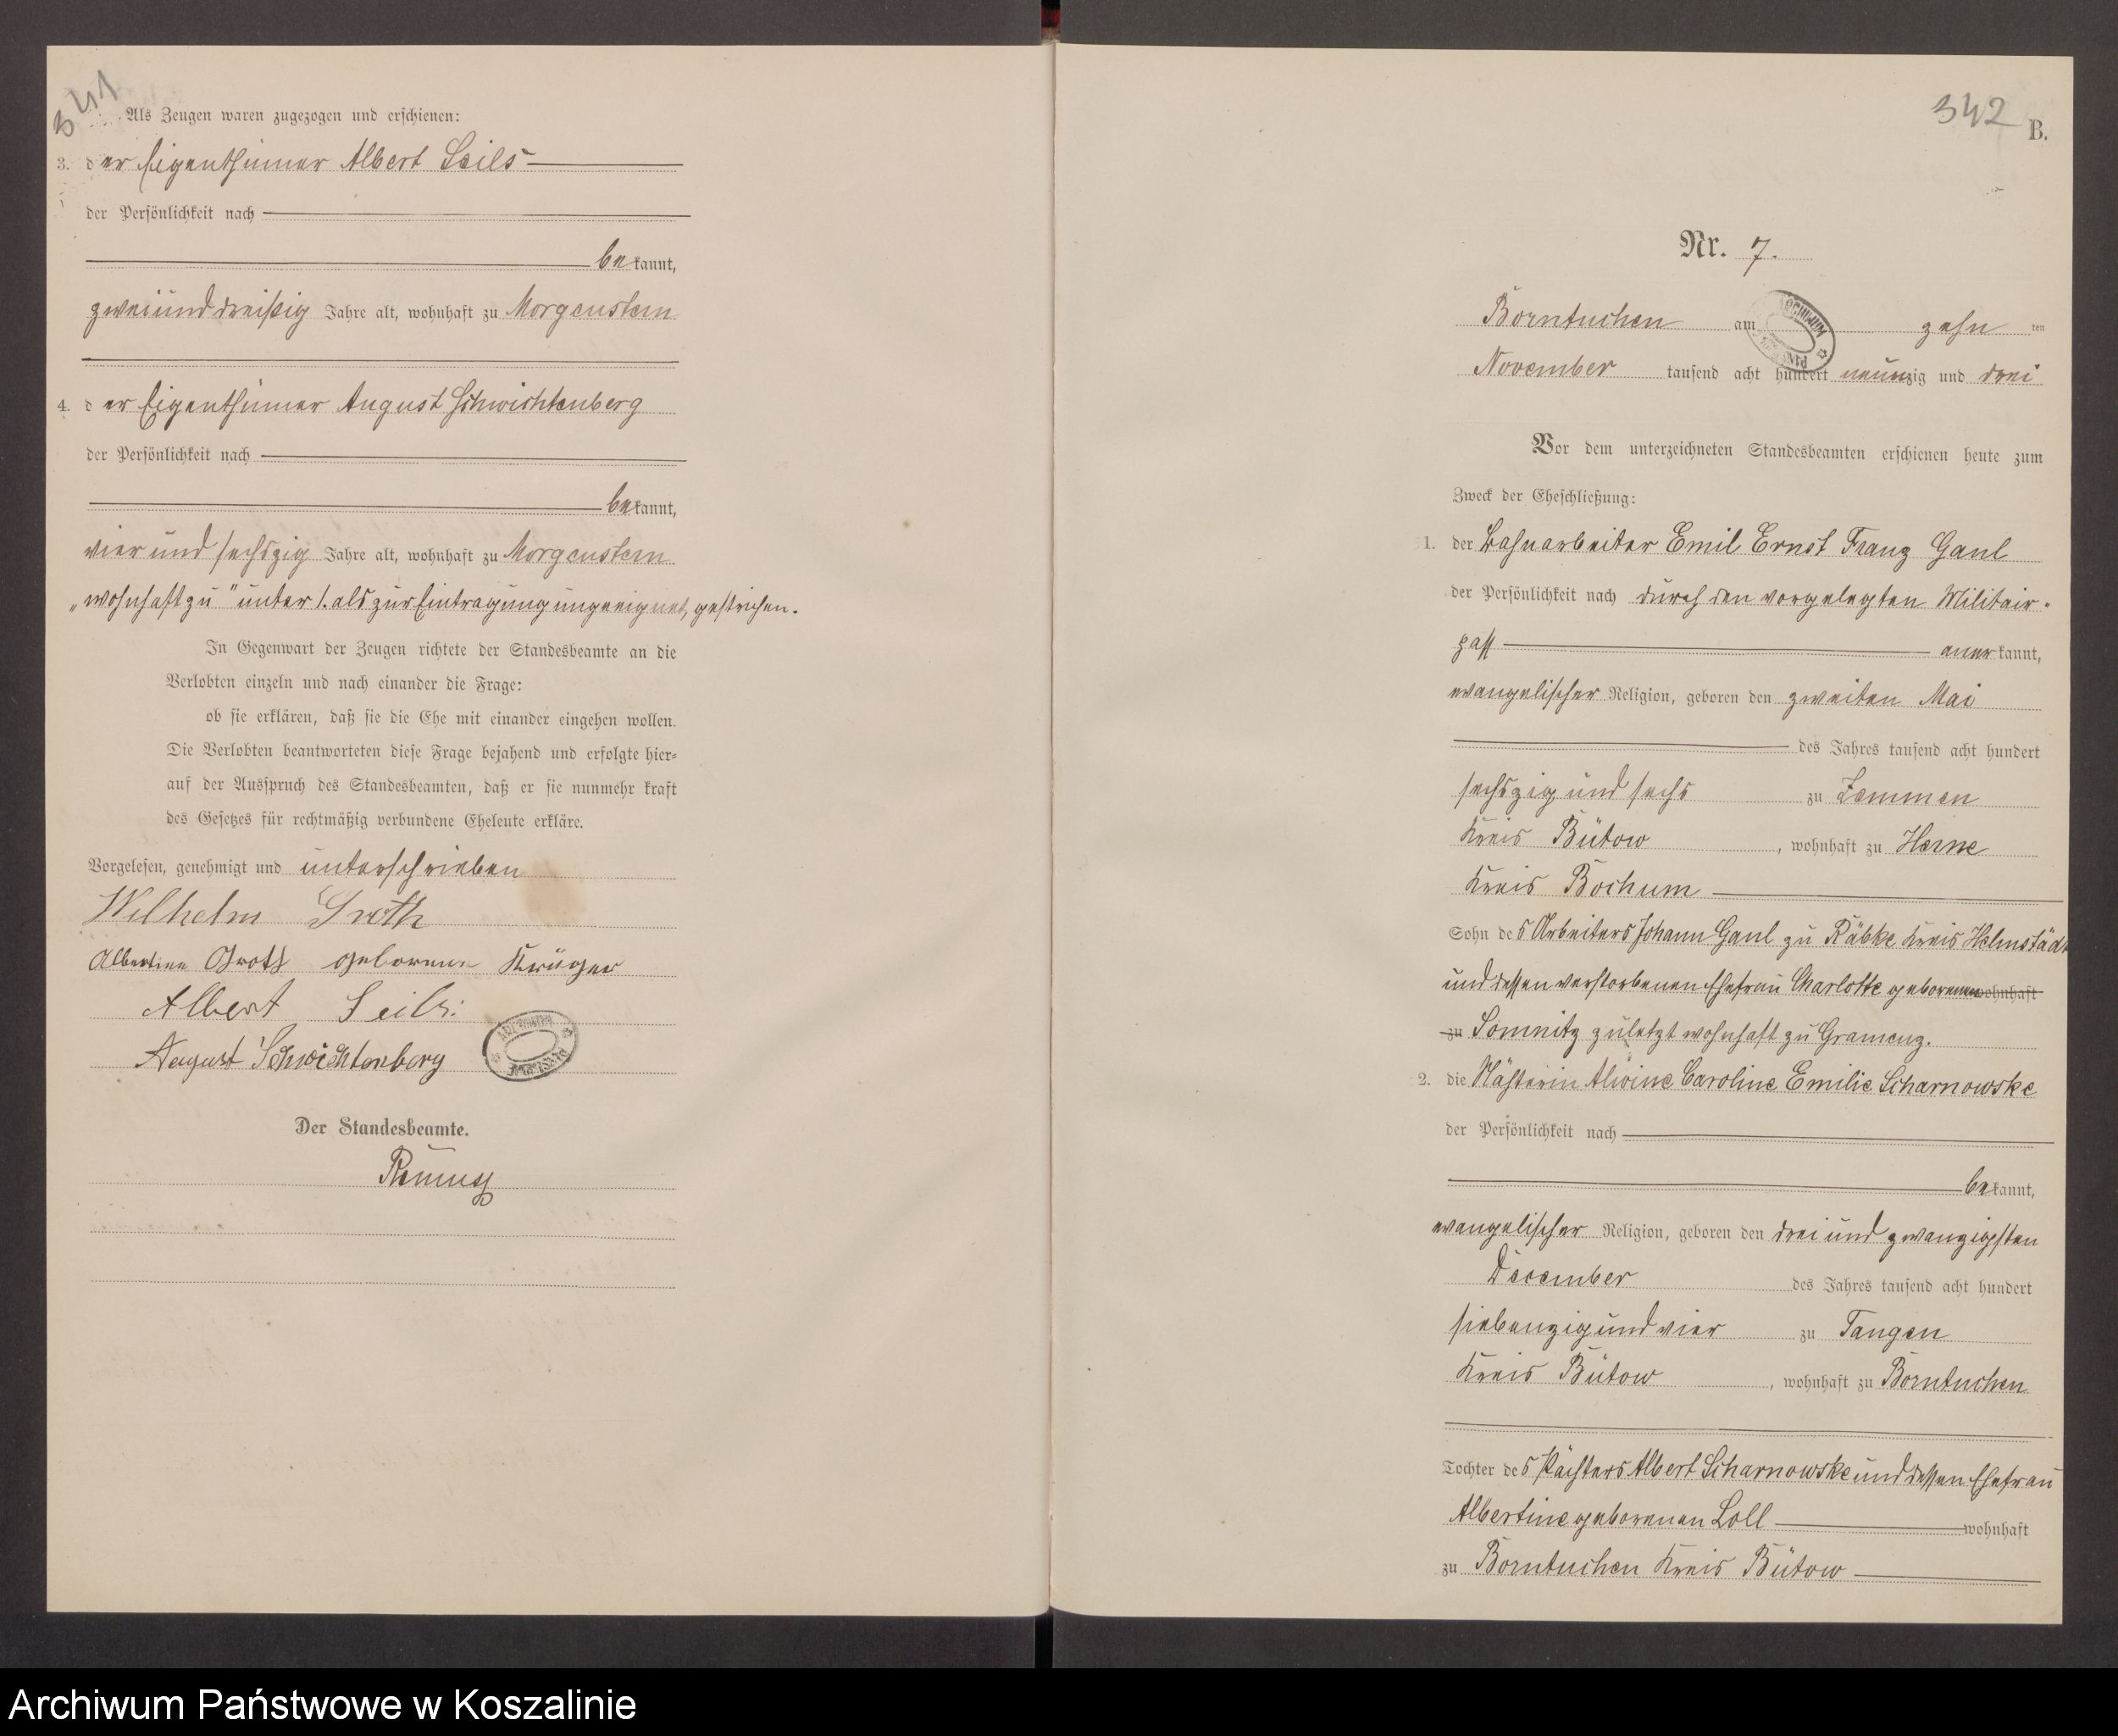 341
Als Zeugen waren zugezogen und erschienen:
3. der Eigenthümer Albert Seils
der Persönlichkeit nach
bekannt,
zweiunddreißig Jahre alt, wohnhaft zu Morgenstern
4. der Eigenthümer August Schwichtenberg
der Persönlichkeit nach
bekannt,
vier und sechszig Jahre alt, wohnhaft zu Morgenstern
„wohnhaft zu" unter 1. als zur Eintragung ungeeignet, gestrichen.
In Gegenwart der Zeugen richtete der Standesbeamte an die
Verlobten einzeln und nach einander die Frage:
ob sie erklären, daß sie die Ehe mit einander eingehen wollen.
Die Verlobten beantworteten diese Frage bejahend und erfolgte hier-
auf der Ausspruch des Standesbeamten, daß er sie nunmehr kraft
des Gesetzes für rechtmäßig verbundene Eheleute erkläre.
Vorgelesen, genehmigt und unterschrieben
Wilhelm Groth
Albertine Groth geborene Krüger
Albert Seils.
August Schwichtenberg
Der Standesbeamte.
342
B.
Nr. 7.
Borntuchen am zehn ten
November tausend acht hundert neunzig und drei
Vor dem unterzeichneten Standesbeamten erschienen heute zum
Zweck der Eheschließung:
1. der Bahnarbeiter Emil Ernst Franz Gaul
der Persönlichkeit nach durch den vorgelegten Militair-
paß anerkannt,
evangelischer Religion, geboren den zweiten Mai
des Jahres tausend acht hundert
sechszig und sechs zu Zemmen
Kreis Bütow, wohnhaft zu Herne
Kreis Bochum
Sohn des Arbeiters Johann Gaul zu Räbke Kreis Helmstädt
und dessen verstorbenen Ehefrau Charlotte geborenen wohnhaft
zu Somnitz zuletzt wohnhaft zu Gramenz.
2. die Nähterin Alwine Caroline Emilie Scharnowske
der Persönlichkeit nach
bekannt,
evangelischer Religion, geboren den drei und zwanzigsten
December des Jahres tausend acht hundert
siebenzig und vier zu Tangen
Kreis Bütow, wohnhaft zu Borntuchen
Tochter des Pächters Albert Scharnowske und dessen Ehefrau
Albertine geborenen Loll wohnhaft
zu Borntuchen Kreis Bütow
Archiwum Państwowe w Koszalinie